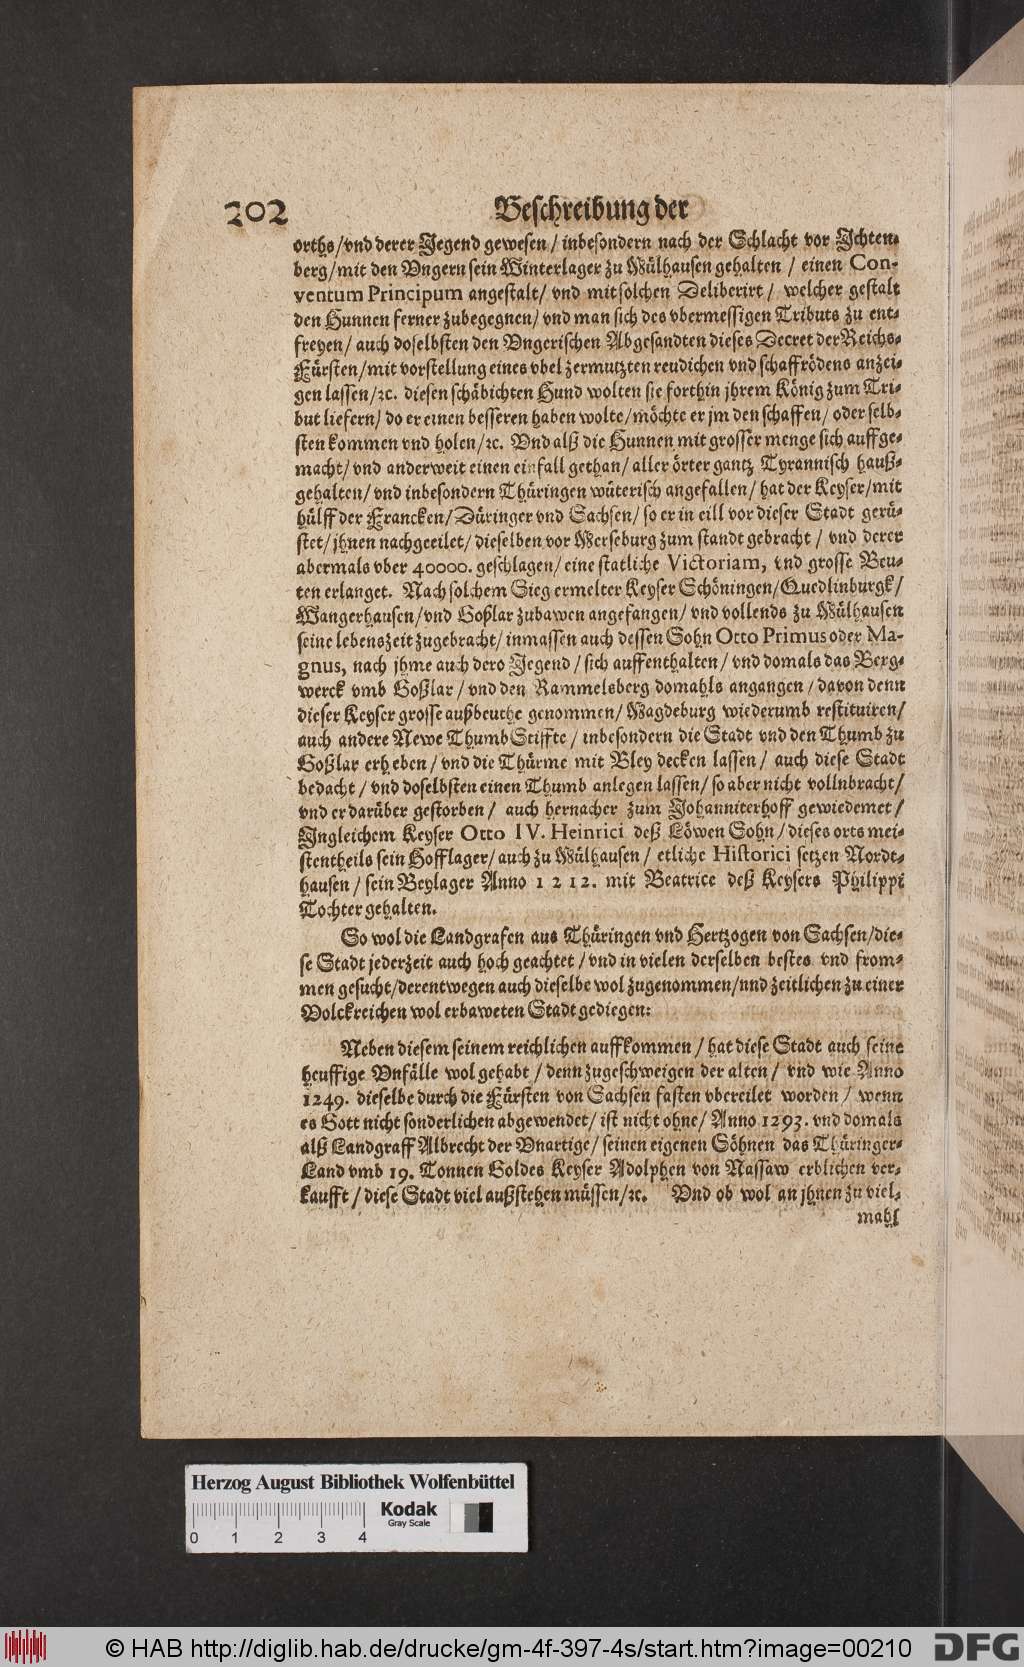 202 Beschreibung der
orths/vnd derer Jegend gewesen/ inbesondern nach der Schlacht vor Ichten-
berg/mit den Vngern sein Winterlager zu Mülhausen gehalten / einen Con-
ventum Principum angestalt/ vnd mit solchen Deliberirt/ welcher gestalt
den Hunnen ferner zubegegnen/ vnd man sich des vbermessigen Tributs zu ent-
freyen/ auch doselbsten den Vngerischen Abgesandten dieses Decret der Reichs-
Fürsten/mit vorstellung eines vbel zermutzten reudichen vnd schaffrödens anzei-
gen lassen/ꝛc. diesen schäbichten Hund wolten sie forthin jhrem König zum Tri-
but liefern/ do er einen besseren haben wolte/möchte er jm den schaffen/ oder selb-
sten kommen vnd holen/ꝛc. Vnd alß die Hunnen mit grosser menge sich auffge-
macht/ vnd anderweit einen einfall gethan/ aller örter gantz Tyrannisch hauß-
gehalten/ vnd inbesondern Thüringen wüterisch angefallen/ hat der Keyser/mit
hülff der Francken/Düringer vnd Sachsen/ so er in eill vor dieser Stadt gerü-
stet/ jhnen nachgeeilet/ dieselben vor Merseburg zum standt gebracht / vnd derer
abermals vber 40000. geschlagen/ eine statliche Victoriam, vnd grosse Beu-
ten erlanget. Nach solchem Sieg ermelter Keyser Schöningen/Quedlinburgk/
Wangerhausen/vnd Goßlar zubawen angefangen/ vnd vollends zu Mülhausen
seine lebenszeit zugebracht/ inmassen auch dessen Sohn Otto Primus oder Ma-
gnus, nach jhme auch dero Jegend / sich auffenthalten/ vnd domals das Berg-
werck vmb Goßlar / vnd den Rammelsberg domahls angangen / davon denn
dieser Keyser grosse außbeuthe genommen/ Magdeburg wiederumb restituiren/
auch andere Newe Thumb Stiffte / inbesondern die Stadt vnd den Thumb zu
Goßlar erheben / vnd die Thürme mit Bley decken lassen / auch diese Stadt
bedacht / vnd doselbsten einen Thumb anlegen lassen/ so aber nicht vollnbracht/
vnd er darüber gestorben / auch hernacher zum Johanniterhoff gewiedemet /
Ingleichem Keyser Otto IV. Heinrici deß Löwen Sohn / dieses orts mei-
stentheils sein Hofflager/ auch zu Mülhausen / etliche Historici setzen Nordt-
hausen / sein Beylager Anno 1212. mit Beatrice deß Keysers Philippi
Tochter gehalten.
So wol die Landgrafen aus Thüringen vnd Hertzogen von Sachsen/die-
se Stadt jederzeit auch hoch geachtet / vnd in vielen derselben bestes vnd from-
men gesucht/derentwegen auch dieselbe wol zugenommen/vnd zeitlichen zu einer
Volckreichen wol erbaweten Stadt gediegen:
Neben diesem seinem reichlichen auffkommen / hat diese Stadt auch seine
heuffige Vnfälle wol gehabt / denn zugeschweigen der alten / vnd wie Anno
1249. dieselbe durch die Fürsten von Sachsen fasten vbereilet worden / wenn
es Gott nicht sonderlichen abgewendet/ ist nicht ohne/ Anno 1293. vnd domals
alß Landgraff Albrecht der Vnartige/ seinen eigenen Söhnen das Thüringer-
Land vmb 19. Tonnen Goldes Keyser Adolphen von Nassaw erblichen ver-
kaufft / diese Stadt viel außstehen müssen/ꝛc. Vnd ob wol an jhnen zu viel-
mahl
Herzog August Bibliothek Wolfenbüttel
Kodak
Gray Scale
0 1 2 3 4
© HAB http://diglib.hab.de/drucke/gm-4f-397-4s/start.htm?image=00210 DFG